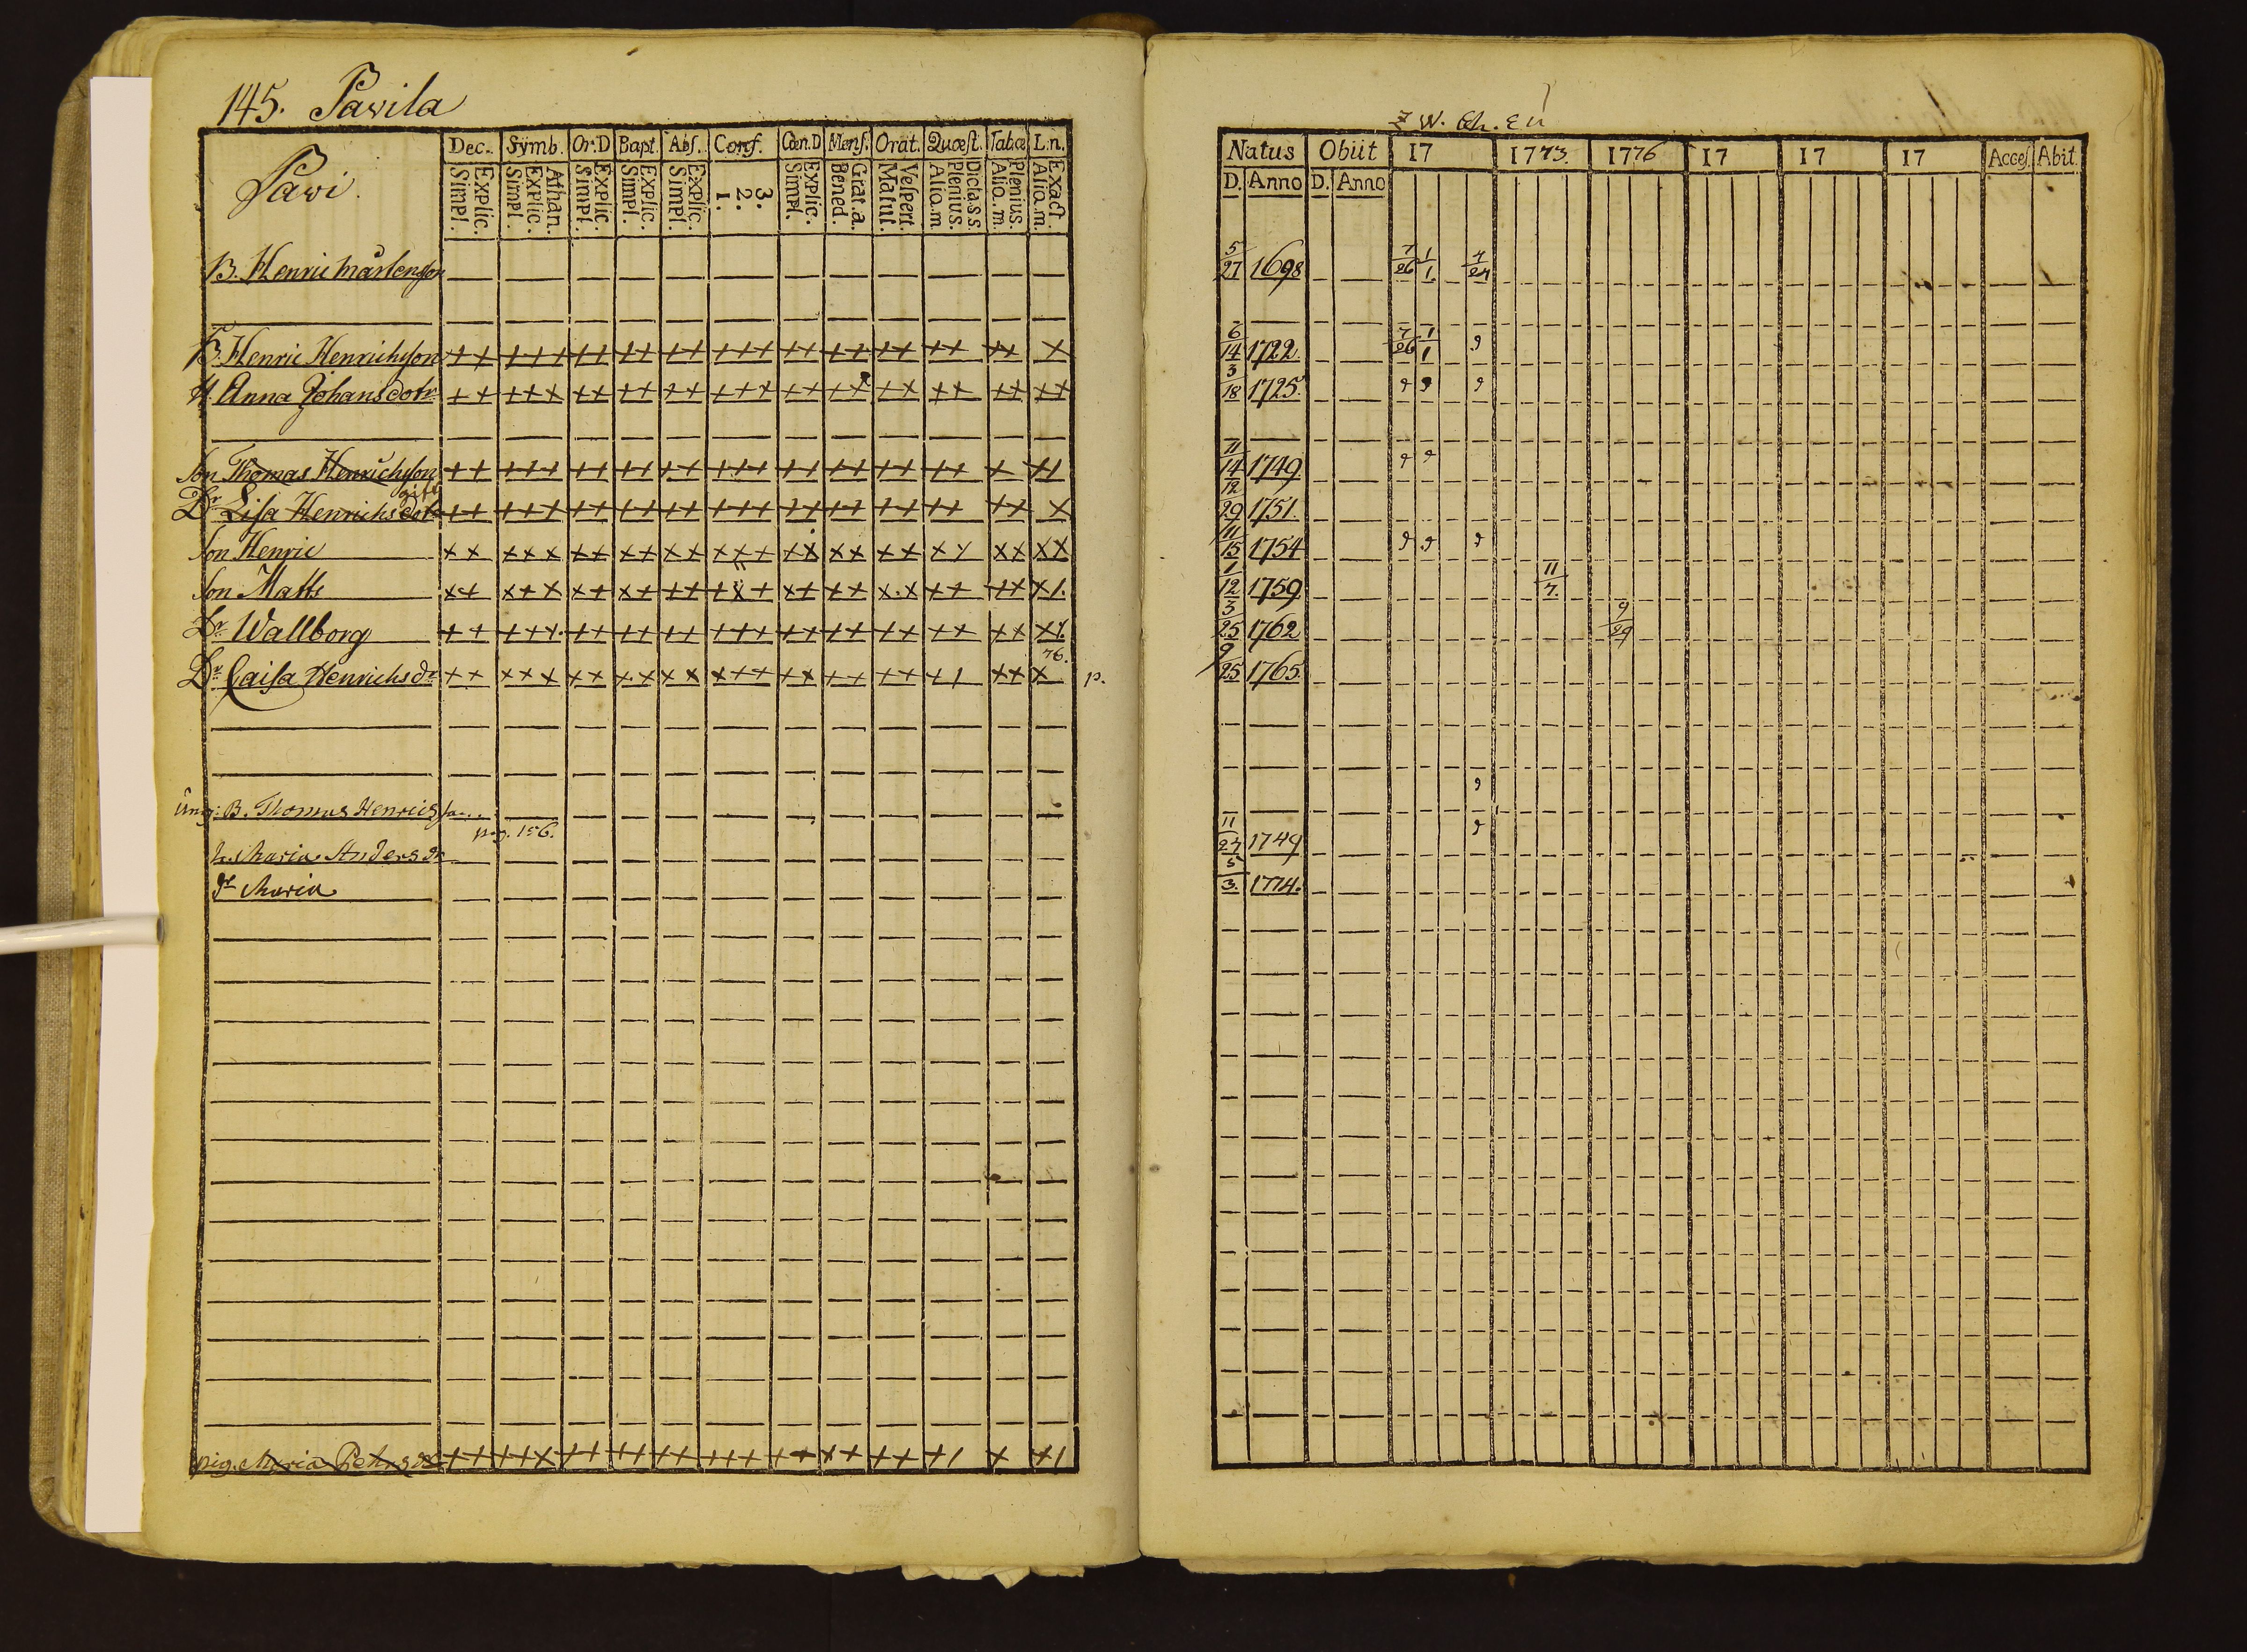 145. Pavila
Dec. Symb. Or.D Bapt. Abs. Conf. Cœn.D Mens. Orat. Quæst. Tabæ L.n.
Pavi.
Explic. Simpl. Athan. Explic. Simpl. Explic. Simpl. Explic. Simpl. Explic. Simpl. 3. 2. 1. Explic. Simpl. Grat.a. Bened. Vespert. Matut. Dicta.s.s. Plenius. Alio.m Plenius. Alio.m. Exact. Alio.m.
B. Henric Mårtensson
B. Henric Henrichsson ++ +++ ++ ++ ++ +++ ++ ++ ++ ++ ++ +
H. Anna Johansdotr ++ +++ ++ ++ ++ +++ ++ ++ ++ ++ ++ ++
Son Thomas Henrichsson ++ +++ ++ ++ ++ +++ ++ ++ ++ ++ + +1
gift
Dr. Lisa Henrichsdotr ++ +++ ++ ++ ++ +++ ++ ++ ++ ++ ++ +
Son Henric ++ +++ ++ ++ ++ +++ ++ ++ ++ ++ ++ ++
Son Matts ++ +++ ++ ++ ++ +++ ++ ++ ++ ++ ++ +1.
Dr. Wallborg ++ +++ ++ ++ ++ +++ ++ ++ ++ ++ ++
76.
Dr. Caisa Henrichsdr ++ +++ ++ ++ ++ +++ ++ ++ ++ +1 ++ + p.
B. Thomas Henrics
pag. 156.
h. Maria Andersdr
dr Maria
pig. Maria Pehrsdr ++ +++ ++ ++ ++ +++ ++ ++ ++ +1 + +1
Natus Obiit 17 1773. 1776 17 17 17 Acces. Abit.
D. Anno D. Anno
5/27 1698 7/26 1/1 4/24
6/14 1722 7/26 1/1 9
3/18 1725. 9 9 9
11/14 1749 9 9
12/29 1751.
11/15 1754 9 9 9
1/12 1759 11/7
3/25 1762 9/29
9/25 1765.
9
11/27 1749 9
5/3. 1774.